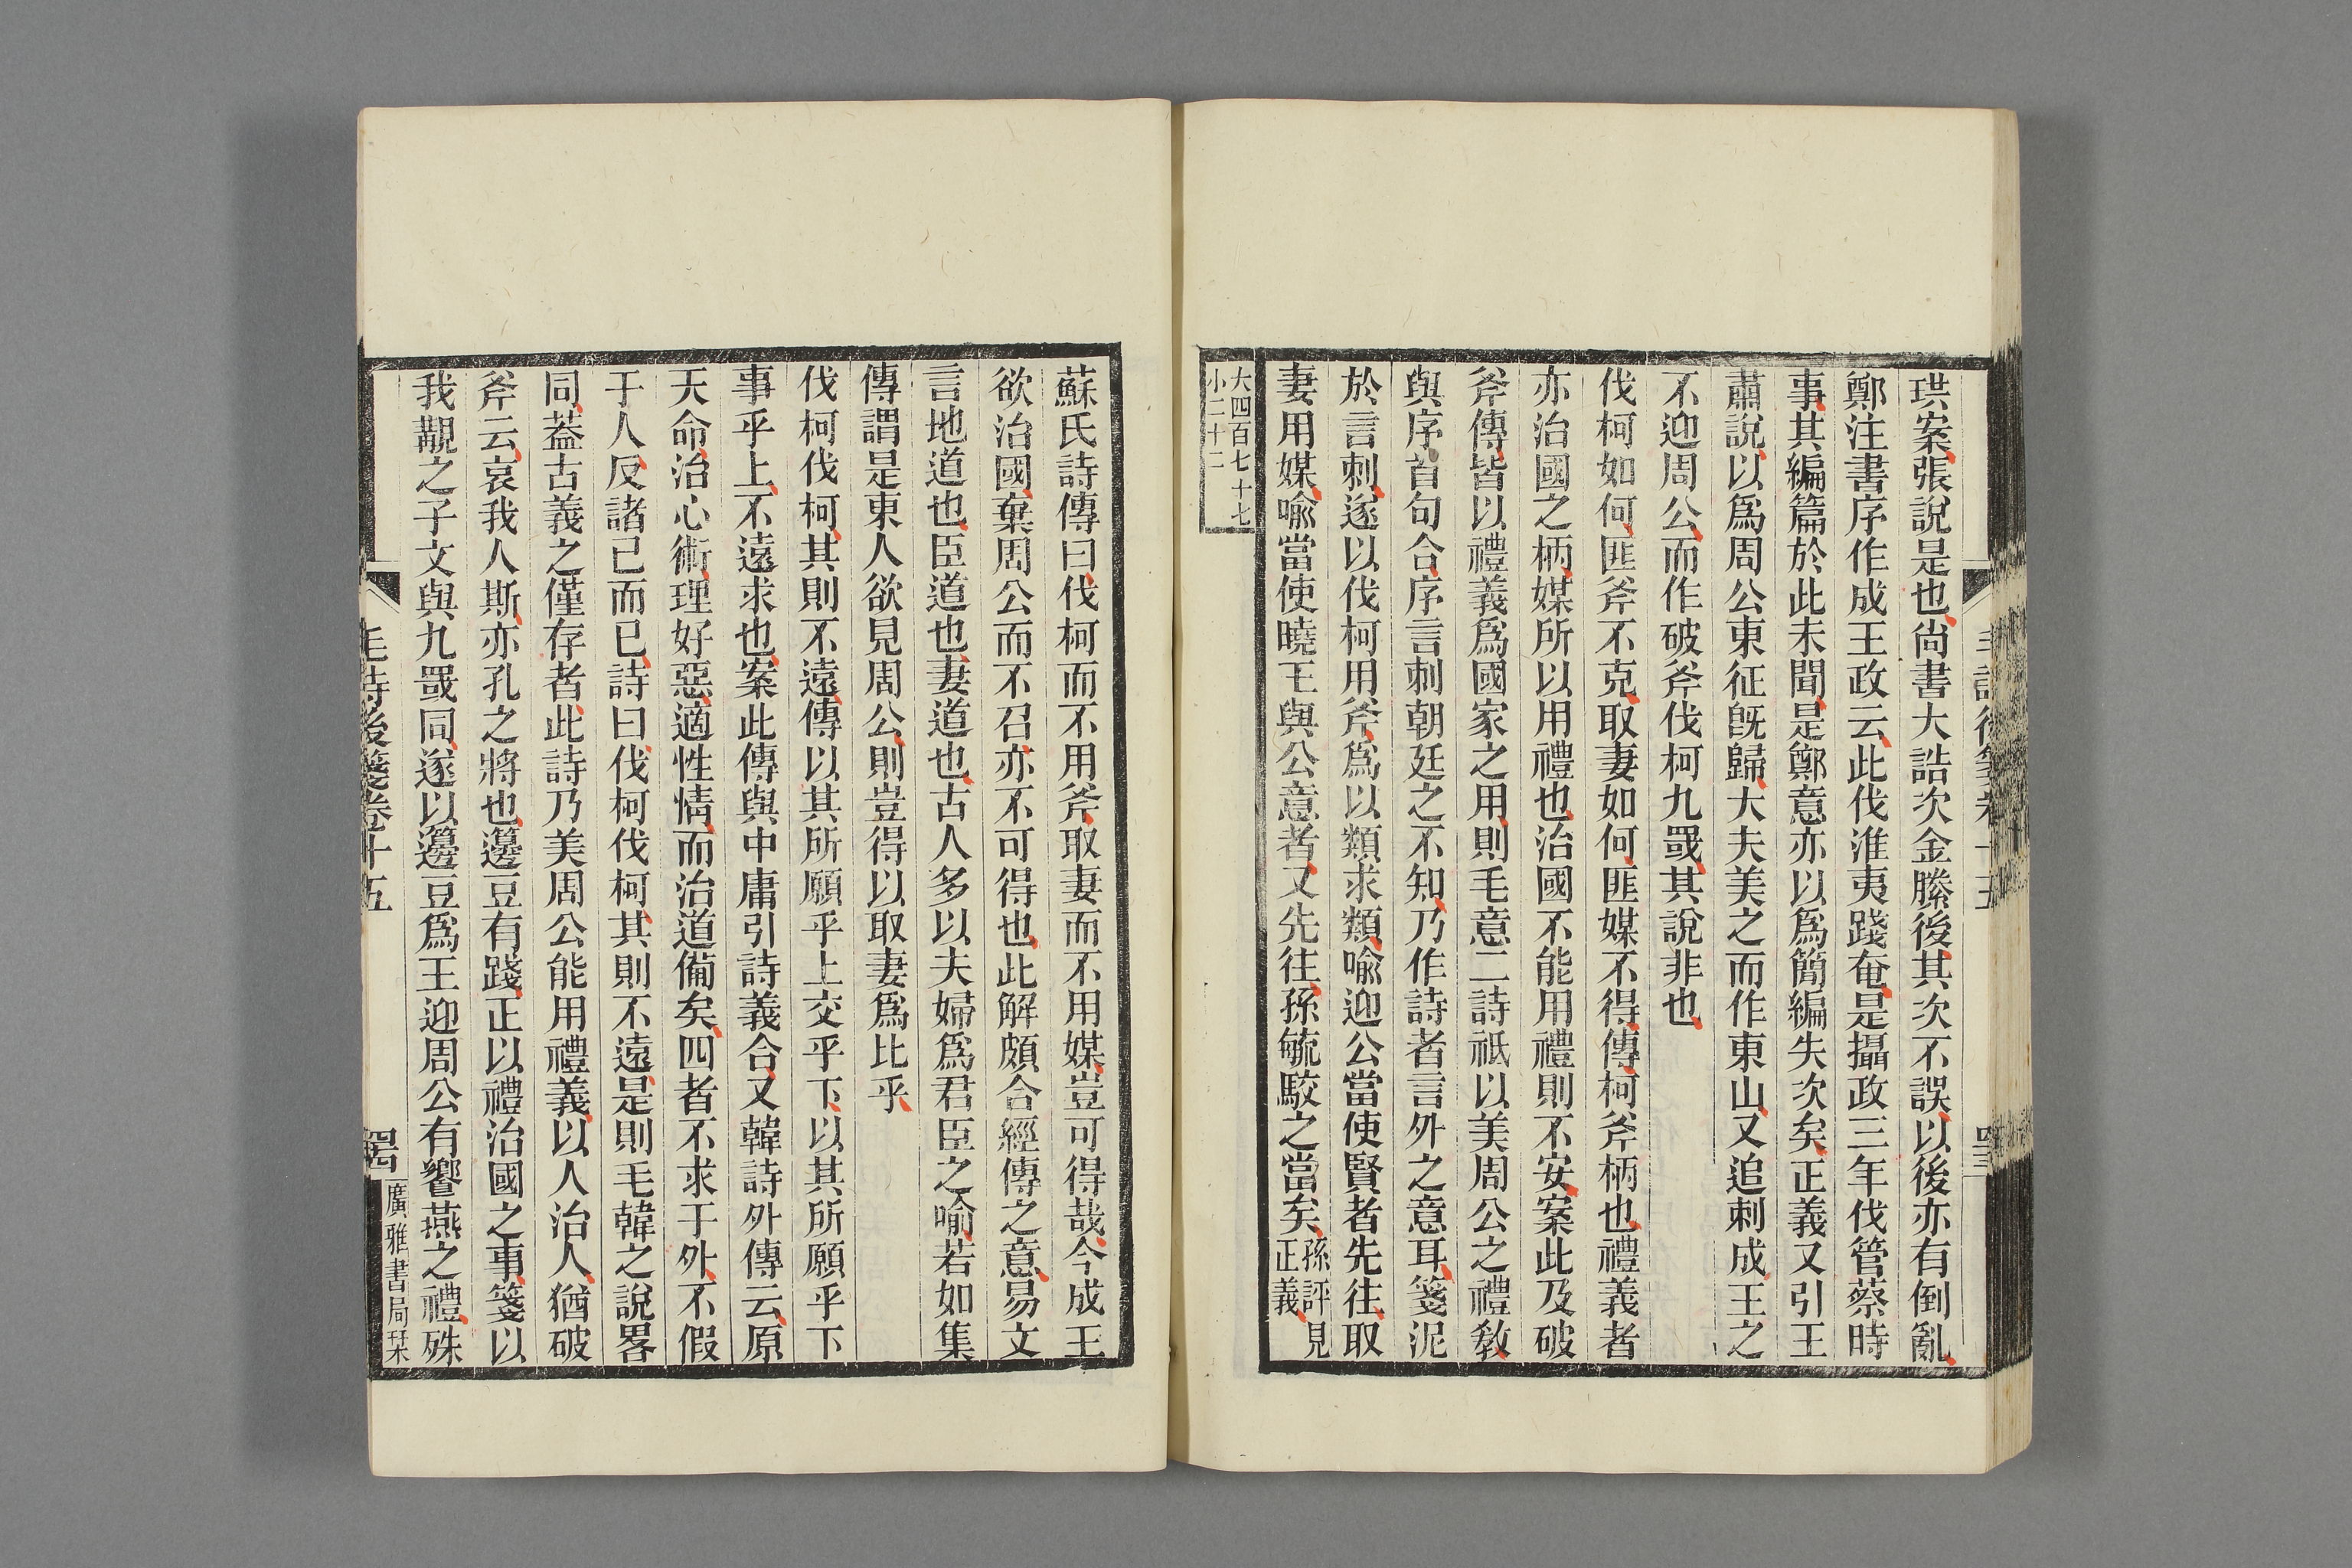 珙案張說是也尙書大誥次金縢後其次不誤以後亦有倒亂
鄭注書序作成王政云此伐淮夷踐奄是攝政三年伐管蔡時
事其編篇於此未聞是鄭意亦以爲簡編失次矣正義又引王
肅說以爲周公東征旣歸大夫美之而作東山又追刺成王之
不迎周公而作破斧伐柯九罭其說非也
伐柯如何匪斧不克取妻如何匪媒不得傳柯斧柄也禮義者
亦治國之柄媒所以用禮也治國不能用禮則不安案此及破
斧傳皆以禮義爲國家之用則毛意二詩祗以美周公之禮敎
與序首句合序言刺朝廷之不知乃作詩者言外之意耳箋泥
於言刺遂以伐柯用斧爲以類求類喻迎公當使賢者先往取
妻用媒喻當使曉王與公意者又先往孫毓駮之當矣孫評見正義
大四百七十七
小二十二
蘇氏詩傳曰伐柯而不用斧取妻而不用媒豈可得哉今成王
欲治國棄周公而不召亦不可得也此解頗合經傳之意易文
言地道也臣道也妻道也古人多以夫婦爲君臣之喻若如集
傳謂是東人欲見周公則豈得以取妻爲比乎
伐柯伐柯其則不遠傳以其所願乎上交乎下以其所願乎下
事乎上不遠求也案此傳與中庸引詩義合又韓詩外傳云原
天命治心術理好惡適性情而治道備矣四者不求于外不假
于人反諸已而已詩曰伐柯伐柯其則不遠是則毛韓之說畧
同葢古義之僅存者此詩乃美周公能用禮義以人治人猶破
斧云哀我人斯亦孔之將也籩豆有踐正以禮治國之事箋以
我覯之子文與九罭同遂以籩豆爲王迎周公有饗燕之禮殊
毛詩後箋卷十五
廣雅書局栞